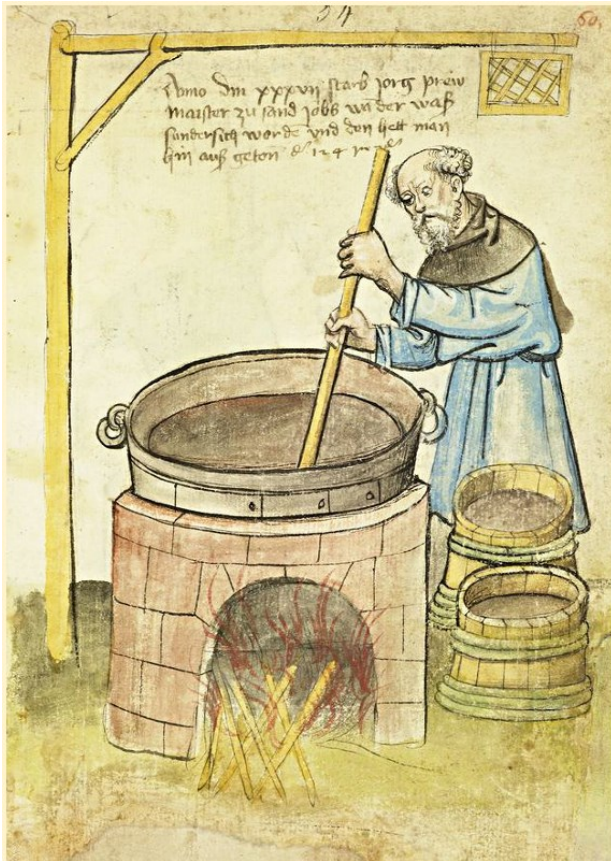 54
60.
Anno dm xxxvii starb jorg prew
maister zu sand jobs wan der waß
sundersich worde vnd den hett man
hin auß geton